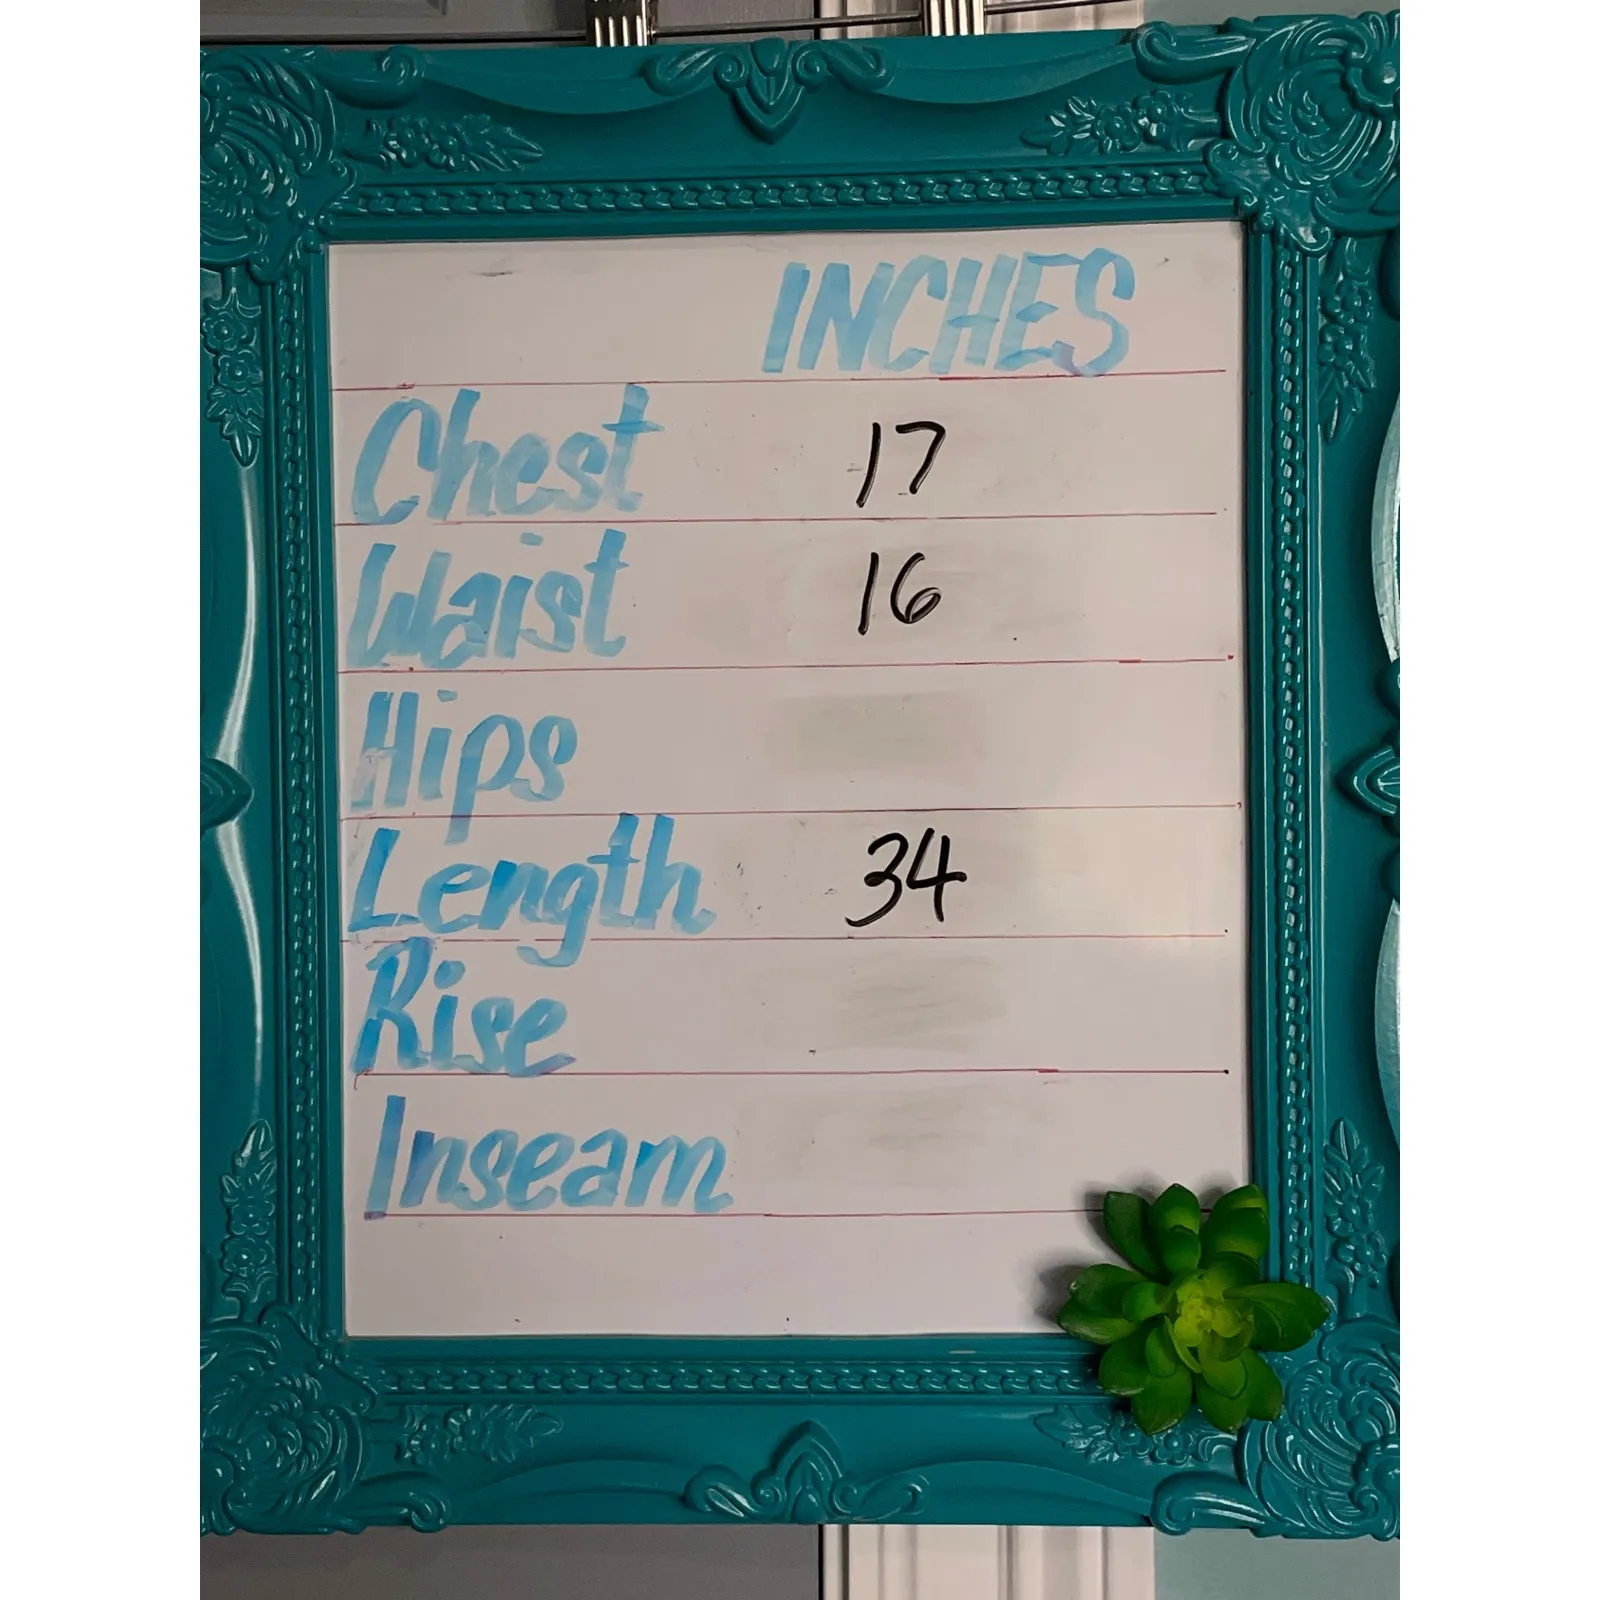 INCHES
Chest 17
Waist 16
Hips
Length 34
Rise
Inseam